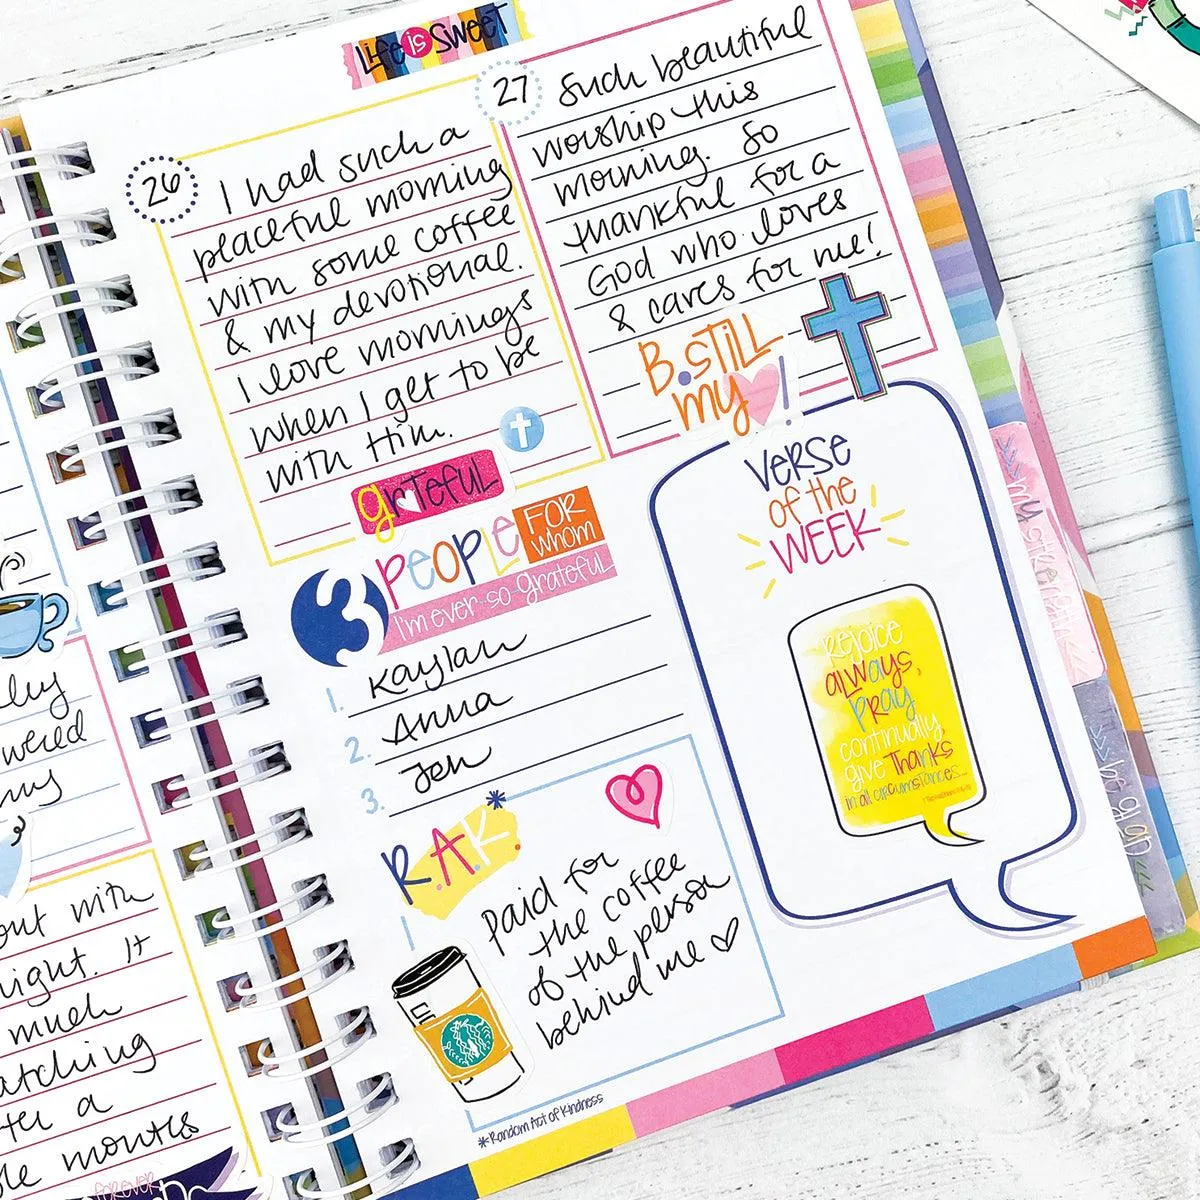 Life is Sweet
26
I had such a
peaceful morning
with some coffee
& my devotional.
I love mornings
when I get to be
with Him.
grateful
27
Such beautiful
worship this
morning. So
thankful for a
God who loves
& cares for me!
B.STILL
my !
3 PEOPLE FOR
whom
I'm ever-so-grateful
1. Kaylan
2. Anna
3. Jen
R.A.K.*
Paid for
the coffee
of the person
behind me
*Random Act of Kindness
VERSE
of the
WEEK
Rejoice
always,
Pray
continually
give Thanks
in all circumstances...
my strength
out with
night. It
much
atching
a
months
FOREVER